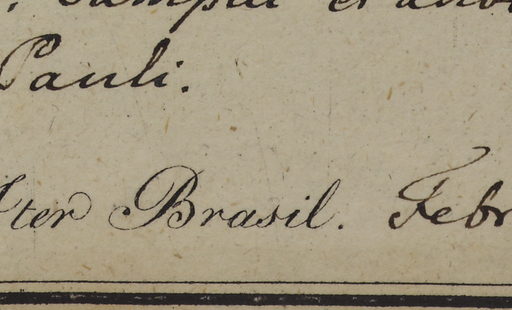 Pauli.
Iter Brasil. Febr